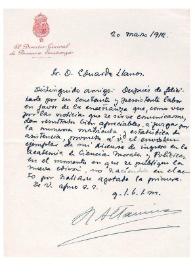 El Director General
de Primera Enseñanza
20 mayo 1912.
Sr. D. Eduardo Llanos
Distinguido amigo: Después de felici-
tarle por su constante y persistente labor
en favor de la enseñanza que, como veo
por las noticias que se sirve comunicarme,
dan resultados bien apreciables, a juzgar por
la numerosa matrícula y estadística de
asistencia, prometo a V. el envío de un
ejemplar de mi discurso de ingreso en la
Academia de Ciencias Morales y Políticas,
en el momento en que se publique una
nueva edición, no haciendo en el ac-
to por hallarse agotada la primera.
De V. afmo. s. s.
q. l. b. l. m.
R Altamira